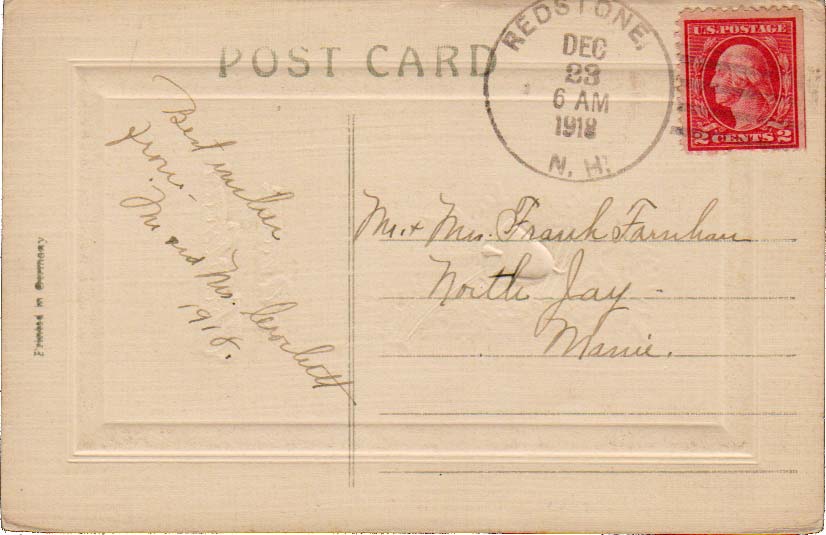 POST CARD
REDSTONE,
DEC
23
6 AM
1918
N. H.
U.S. POSTAGE
2 CENTS 2
Best wishes
from -
Mr and Mrs.
1918.
Mr. & Mrs. Frank Farnham
North Jay -
Maine.
Printed in Germany